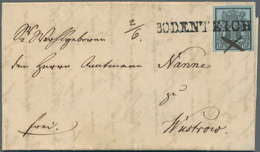 2/6.
BODENTEICH
Sr Wohlgeboren
den Herrn Amtmann Nanne
zu
Wustrow
frei.